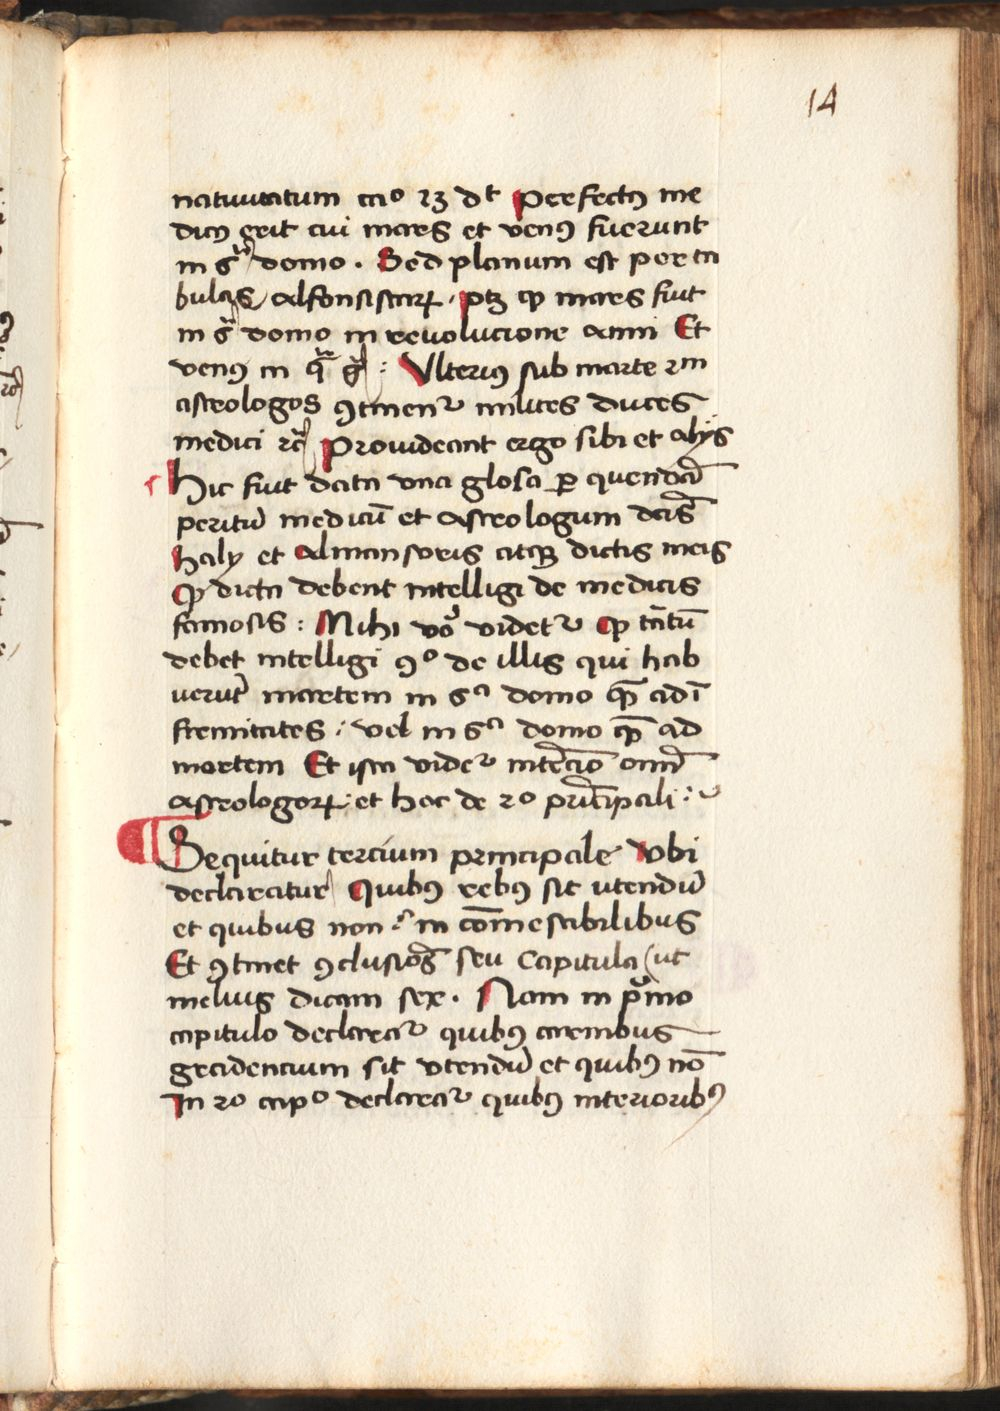 14
natiuitatum cao 23 dt Perfectꝰ me
dicꝰ erit cui mars et venꝰ fuerunt
in 6a domo . Sed planum est per ta
bulas Alfonsistarꝝ . ptꝫ ꝙ mars fuit
in 6a domo in reuolucione anni Et
venꝰ in qa ga : Vlteriꝰ sub marte 2m
astrologos ꝯtinenr milites duces
medici 2c Prouideant ergo sibi et alijs
Hic fuit data vna glosa ꝑ quendā
peritū medicū et astrologum dcis
haly et almansoris atqꝫ dictis meis
ꝙ dicta debent intelligi de medicis
famosis : Mihi vo videtr ꝙ tātū
debet intelligi ꝯo de illis qui hab
uerūt martem in 6a domo qꝫ ad ī
firmitates : vel in 6a domo qꝫ ad
mortem Et ista vider intēcio oīm
astrologorꝝ : et hoc de 2o prīcipali :
Sequitur tercium principale Vbi
declaratur Quibꝰ rebꝰ sit utendū
et quibus non : in cōmestibilibus
Et ꝯtinet ꝯclusiōes seu Capitula (ut
melius dicam sex . Nam in pͥmo
capitulo declarar quibꝰ carnibus
gradencium sit vtendū et quibꝰ nō
In 2o capo declarar quibꝰ interioribꝰ